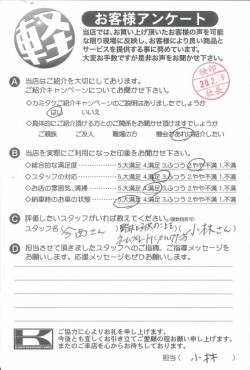 軽
お客様アンケート
当店では、お買い上げ頂いたお客様の声を可能
な限り現場に反映し、お客様により良い商品と
サービスを提供する事に努めています。
大変お手数ですが是非お声をお聞かせ下さい。
検収
30.2.
社長
A 当店はご紹介を大切にしております。
ご紹介キャンペーンについてお聞かせ下さい。
◇カミタケご紹介キャンペーンのご説明はありましたでしょうか
はい いいえ
◇具体的にご紹介頂ける方とのご関係をお聞かせ頂けますでしょうか
ご親族 ご友人 職場の方 機会があれば紹介したい
B 当店を実際にご利用になった印象をお聞かせ下さい。
◇総合的な満足度 5.大満足 4.満足 3.ふつう 2.やや不満 1.不満
◇スタッフの対応 5.大満足 4.満足 3.ふつう 2.やや不満 1.不満
◇お店の雰囲気、清掃 5.大満足 4.満足 3.ふつう 2.やや不満 1.不満
◇納車時のお車の状態 5.大満足 4.満足 3.ふつう 2.やや不満 1.不満
C 評価したいスタッフがいれば教えてください。(複数回答可)
スタッフ名 今西さん 小林さん
D 担当させて頂きましたスタッフへのご指摘、ご指導メッセージを
お願いします。応援メッセージもぜひお願いします。
K
ご協力に心よりお礼を申し上げます。
今後とも宜しくお引き立てご愛顧の程お願い申し上げます。
またのご来店を心からお待ちしております。
担当( 小林 )